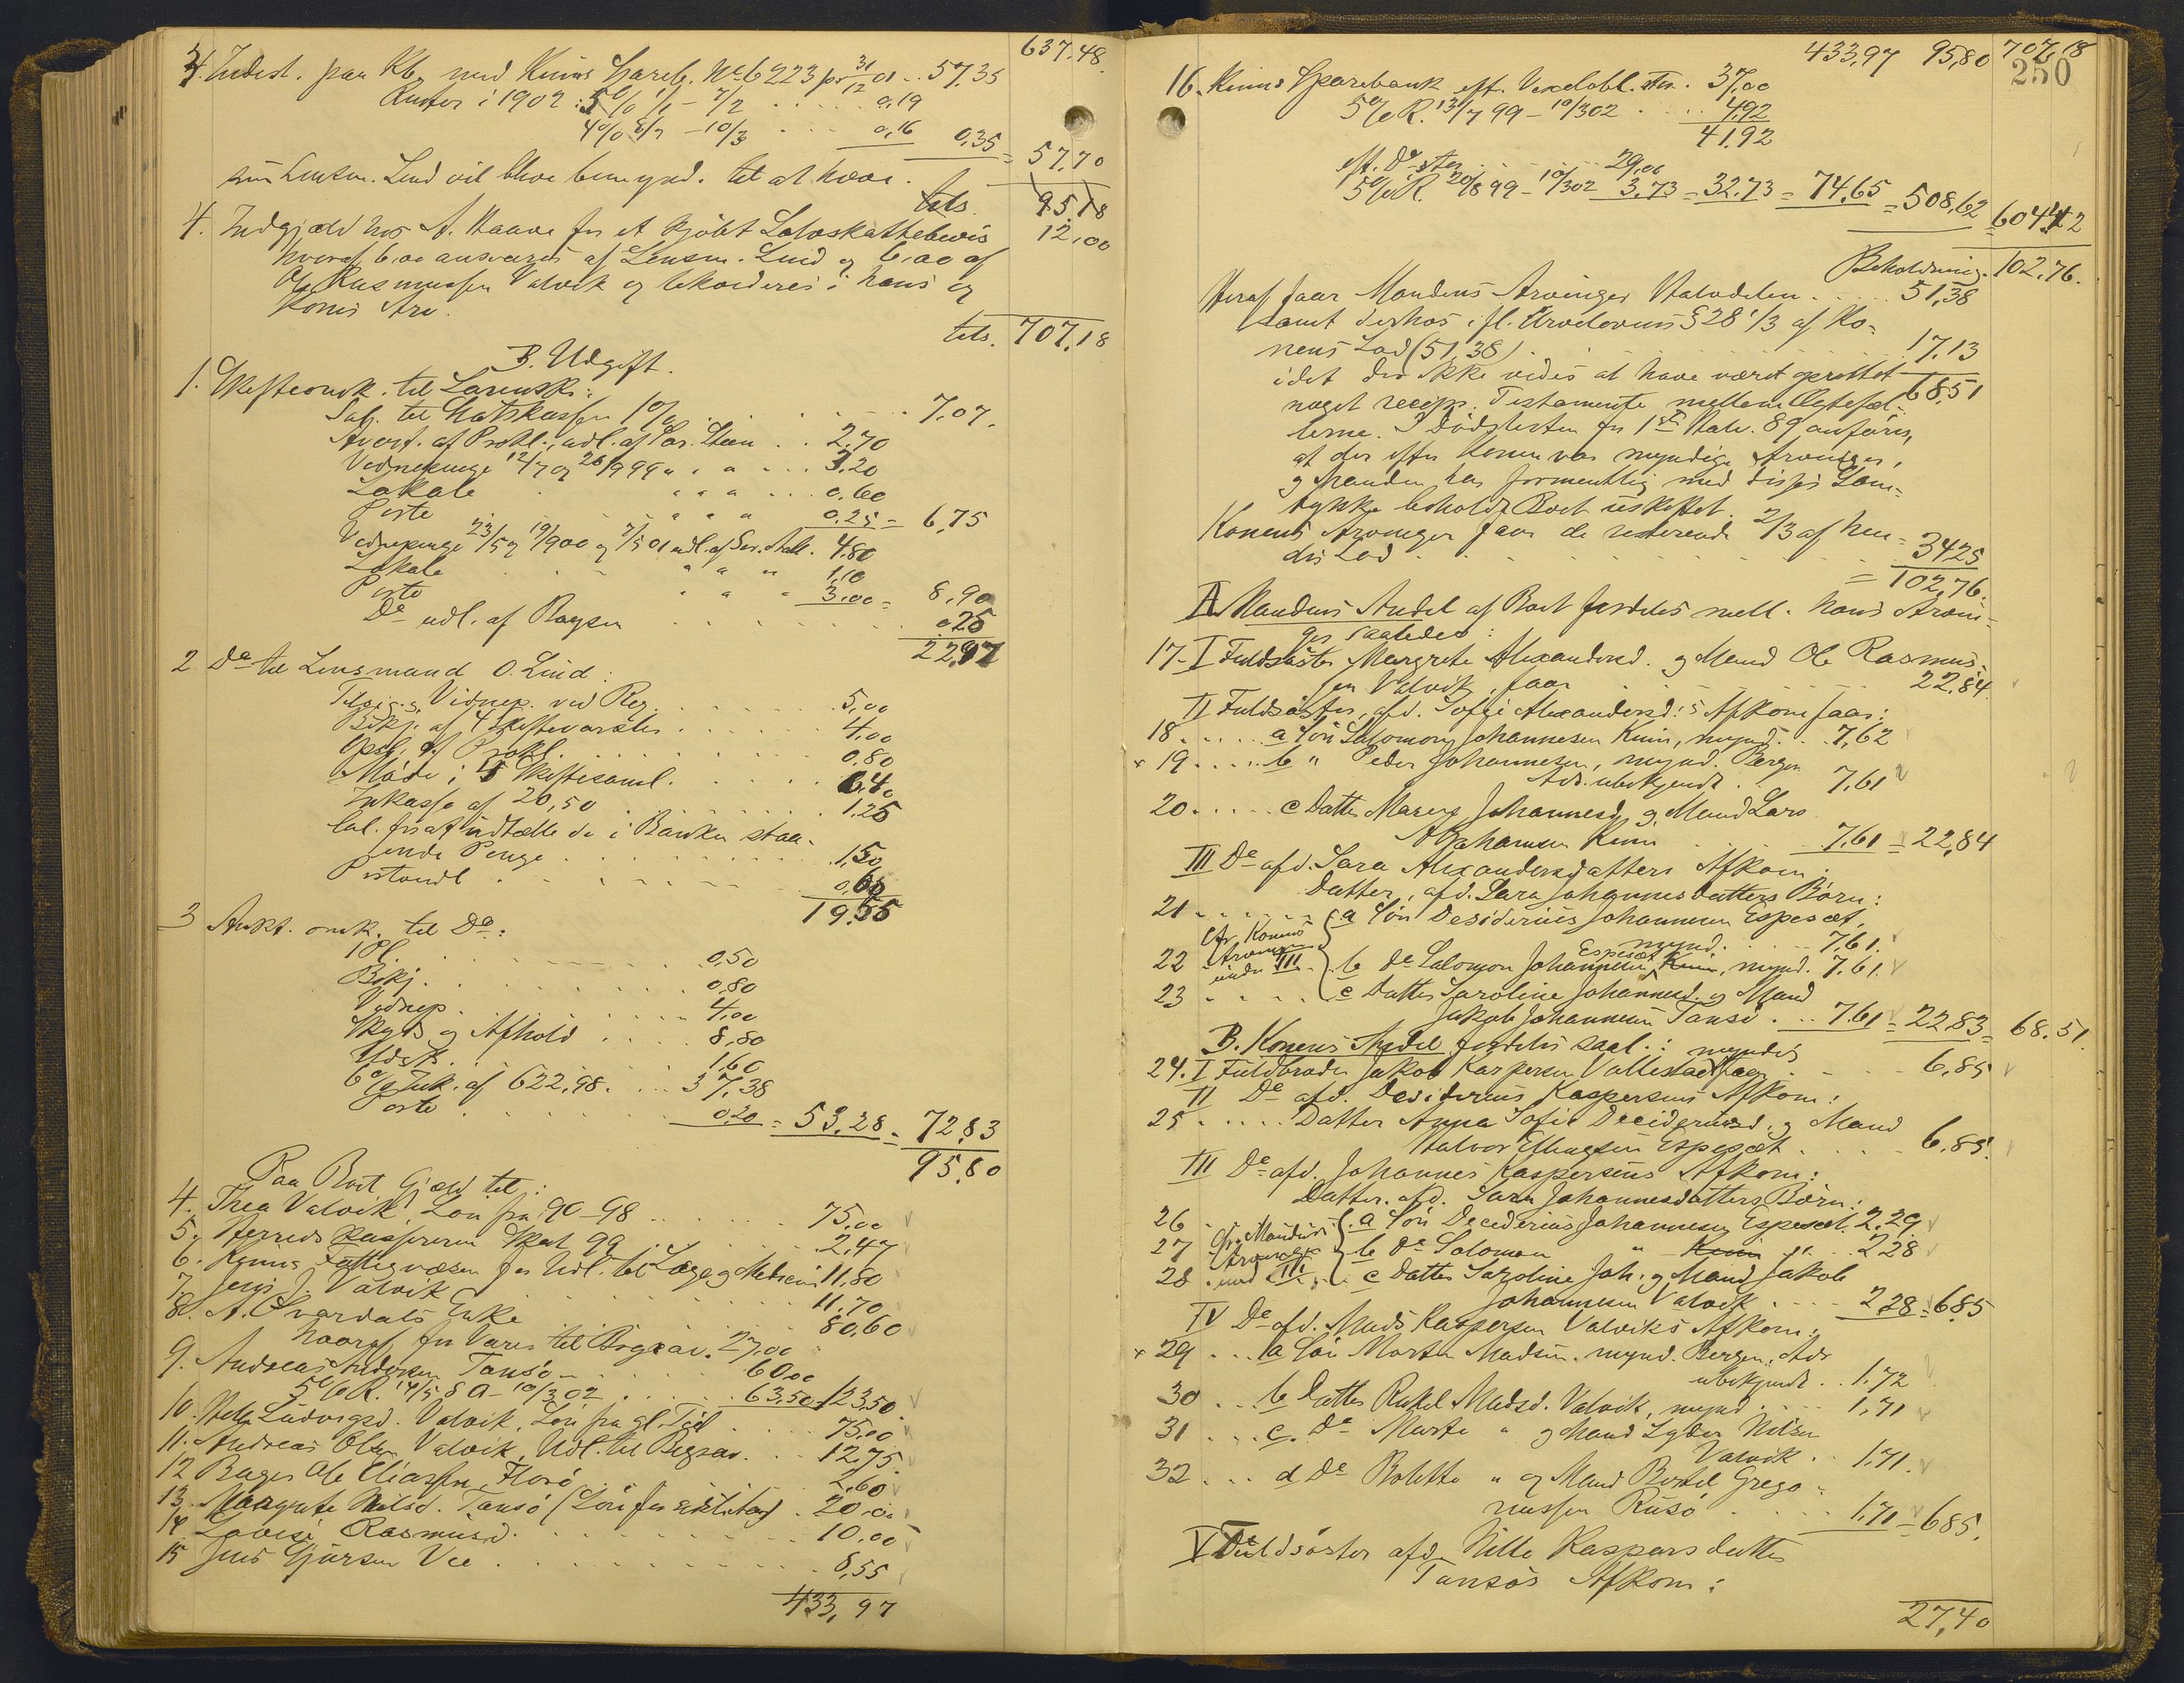 637.48
3. Indest. paa Kb. med Kinns Spareb. No 6223 pr 31/12 01 .. 57,35
Renter i 1902: 5% 1/1 - 7/2 ..... 0,19
4% 8/2 - 10/3 ... 0,16 0,35 = 57,70
som Lensm. Lind vil blive bemynd. til at hæve.
tils. 95,18
4. Indgjæld hos A. Haave for et kjöbt
12,00
hvoraf 6,00 ansvares af Lensm. Lind og 6,00 af
Ole Rasmussen Valvik og likvideres i hans og
Kones Arv.
tils. 707,18
B. Udgift.
1. Skifteomk. til Sorenskr:
Sal. til Statskassen 1% ....... 7,07.
Avert. af Prokl., udl. af Sor. Steen .. 2,70
Vidnepenge 12/7 og 26/9 99 " " " ... 3,20
Lokale . " " " ... 0,60
Porto " " " 0,25 = 6,75
Vidnepenge 23/5 og 19/9 00 og 7/5 01 udl. af Sor. 4,80
Lokale " " " 1,10
Porto " " " 3,00 = 8,90
Do udl. af Roysen ....... 0,25
22,97
2 Do til Lensmand O. Lind:
Tilsig. og Vidnep. ved Reg. ...... 5,00
Bekj. af 4 Skiftevarsler ..... 4,00
Opsl. af Prokl. ...... 0,80
Möde i 5 Skiftesaml. ..... 6,40
Inkasso af 20,50 ...... 1,25
Sal. for at indtælle de i Banken staa-
ende Penge ....... 1,50
Postandl ....... 0,60
19,55
3 Aukt. omk. til Do:
Pl. ....... 0,50
Bekj. ....... 0,80
Vidnep. ....... 4,00
Skyds og Afhold .... 8,80
Udsk. ..... 1,60
6% Ink. af 622,98. ... 37,38
Porto ....... 0,20 = 53,28 = 72,83
95,80
Paa Boet Gjæld til:
4. Thea Valvik, Lön fra 90-98 ....... 75,00
5. Herredskassereren Skat 99 ...... 2,47
6. Kinns Fattigvæsen for Udl. til Læge og Medicin 11,80
7. Jens J. Valvik ....... 11,70
8. A. Svardals Enke ....... 80,60
hvoraf for Varer til Begrav. 27,00
9. Andreas Andersen Tansö ..... 60,00
5% R. 14/5 8 - 10/3 02 ..... 63,50 = 123,50
10. Ludvigsd. Valvik, Lön fra gl. Tid .. 75,00
11. Andreas Olsen Valvik, Udl. til Begrav. .. 12,75.
12 Bager Ole Eliassen, Florö ... 2,60
13. Margrete Nilsd. Tansö (Lön for . 20,00
14 Lovise Rasmusd. ....... 10,00
15 Jens Gjörsen Vee ....... 8,55
433,97
250
433,97 95,80 707,18
16. Kinns Sparebank eft. Vexelobl. 37,00
5% R. 13/7 99 - 10/3 02 .... 4,92
41,92
eft. Do 29,00
5% R. 20/8 99 - 10/3 02 3,73 = 32,73 = 74,65 = 508,62 = 604,42
Beholdning. 102,76.
Heraf faar Mandens Arvinger Halvdelen .... 51,38
samt derhos ifl. Arveloven § 28 1/3 af Ko-
nens Lod (51,38) ....... 17,13
idet der ikke vides at have været oprettet 68,51
noget recipr. Testamente mellem Ægtefæl-
lerne. I Dödslisten for 1ste Halv. 89 anföres,
at der efter Konen var myndige Arvinger,
og Manden har formentlig med disses Sam-
tykke beholdt Boet uskiftet.
Konens Arvinger faar de resterende 2/3 af hen-
des Lod ....... 34,25
= 102,76.
A. Mandens Andel af Boet fordeles mell. hans Arvin-
ger saaledes:
17. I Fuldsöster Margrete Alexandersd. og Mand Ole Rasmus-
sen Valvik, faar ....... 22,84
II Fuldsöster, afd. Sofie Alexandersd:s Afkom faar:
18 ..... a Sön Salomon Johannesen Kinn, mynd. .. 7,62
x 19 .... b " Peder Johannesen, mynd. Bergen
Adr. ubekjendt .. 7,61
20 ..... c Datter Maren Johannesd. og Mand Lars
Abrahamsen Kinn .. 7,61 = 22,84
III Do afd. Sara Alexandersdatters Afkom:
Datter, afd. Sara Johannesdatters Börn:
21 ...... a Sön Desiderius Johannesen Espesæt,
mynd. .... 7,61.
Cfr Konens
Arvinger
under III
22 b Do Salomon Johannesen Espesæt Kinn, mynd. 7,61.
23 ..... c Datter Karoline Johannesd. og Mand
Jakob Johannesen Tansö ... 7,61 = 22,83 = 68,51.
B. Konens Andel fordeles saal.:
24. I Fuldbroder Jakob Kaspersen Vallestad, myndig faar ..... 6,85
II Do afd. Desiderius Kaspersens Afkom:
25 ..... Datter Anna Sofie Decideriusd. og Mand
Halvor Ellingsen Espesæt ..... 6,85.
III Do afd. Johannes Kaspersens Afkom:
Datter. afd. Sara Johannesdatters Börn:
26 . a Sön Deciderius Johannesen Espesæt. 2,29
Cfr. Mandens
Arvinger
und. III
27 b Do Salomon " Kinn " .. 2,28
28 c Datter Karoline Joh. og Mand Jakob
Johannesen Valvik .... 2,28 = 6,85
IV Do afd. Mads Kaspersen Valviks Afkom:
x 29 ... a Sön Morten Madsen. mynd. Bergen. Adr
ubekjendt .. 1,72
30 ... b Datter Rakel Madsd. Valvik, mynd. .... 1,71
31 ... c. Do Marte " og Mand Lyder Nilsen
Valvik .. 1,71.
32 ... d Do Bolette " og Mand Bertel Grego-
riussen Rusö .... 1,71 = 6,85.
V Fuldsöster afd. Nille Kaspersdatter
Tansös Afkom:
27,40